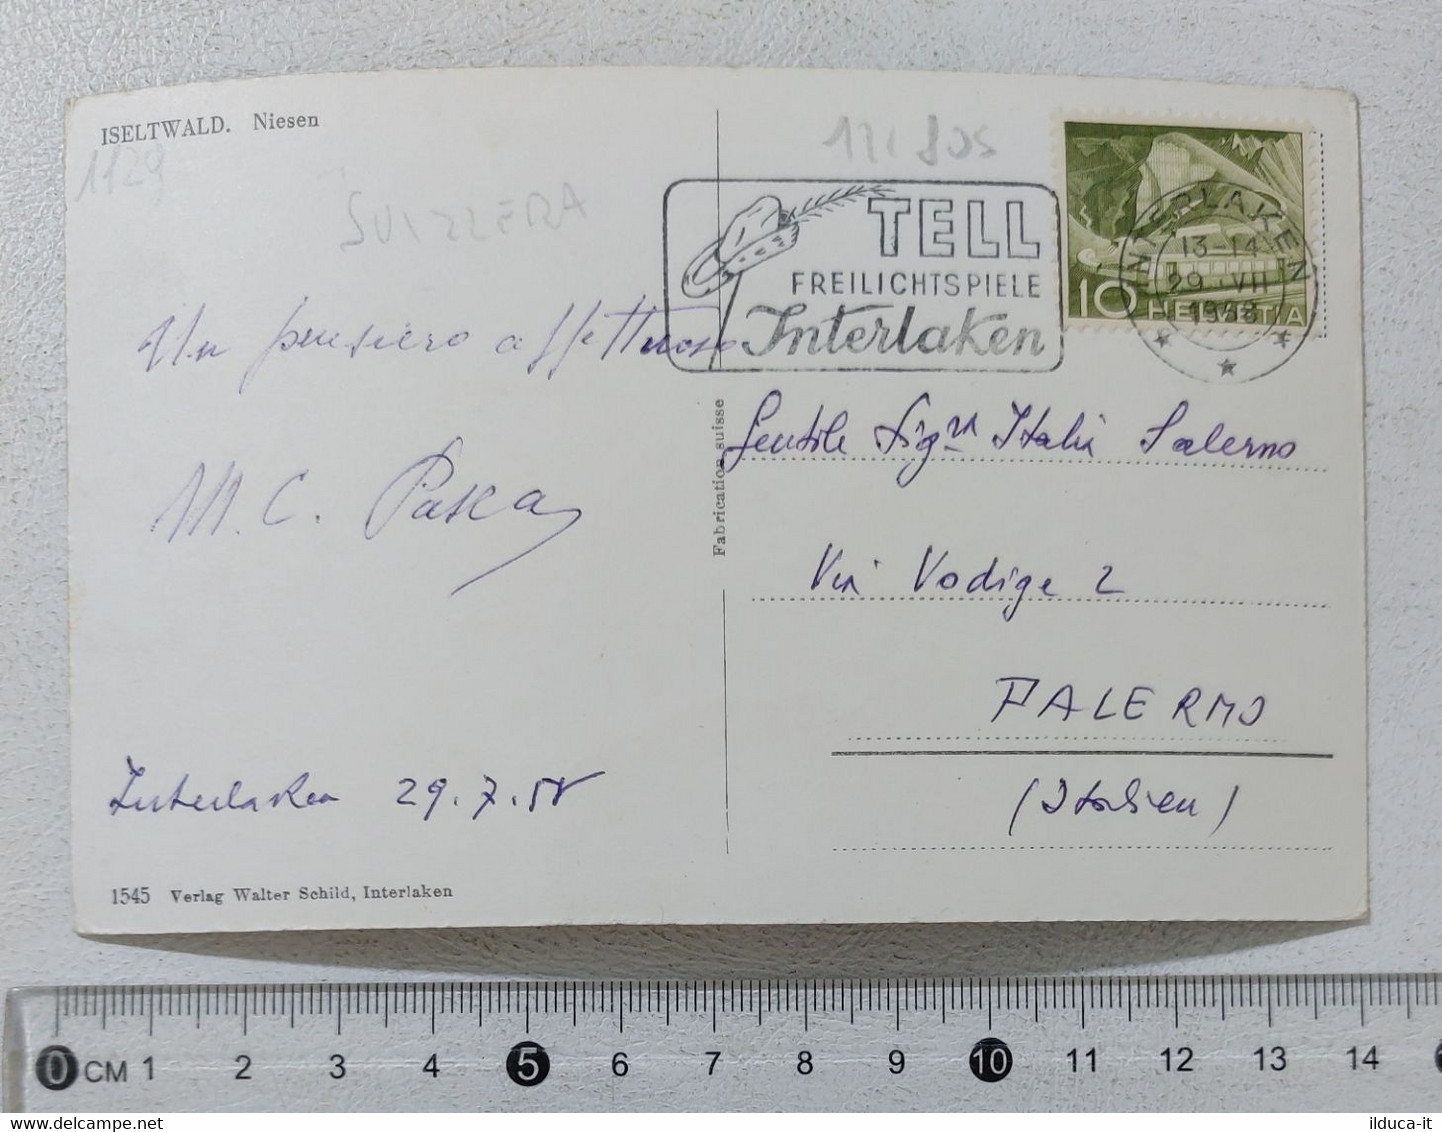 ISELTWALD. Niesen
1129
SVIZZERA
Un pensiero affettuoso
M. C. Pasca
Interlaken 29.7.58
1545 Verlag Walter Schild, Interlaken
Fabrication suisse
TELL
FREILICHTSPIELE
Interlaken
INTERLAKEN
13-14
29. VII
1958
10 HELVETIA
Gentile Sig.ra Italia Salerno
Via Vodige 2
PALERMO
(Italien)
0 CM 1 2 3 4 5 6 7 8 9 10 11 12 13 14
ilduca-it